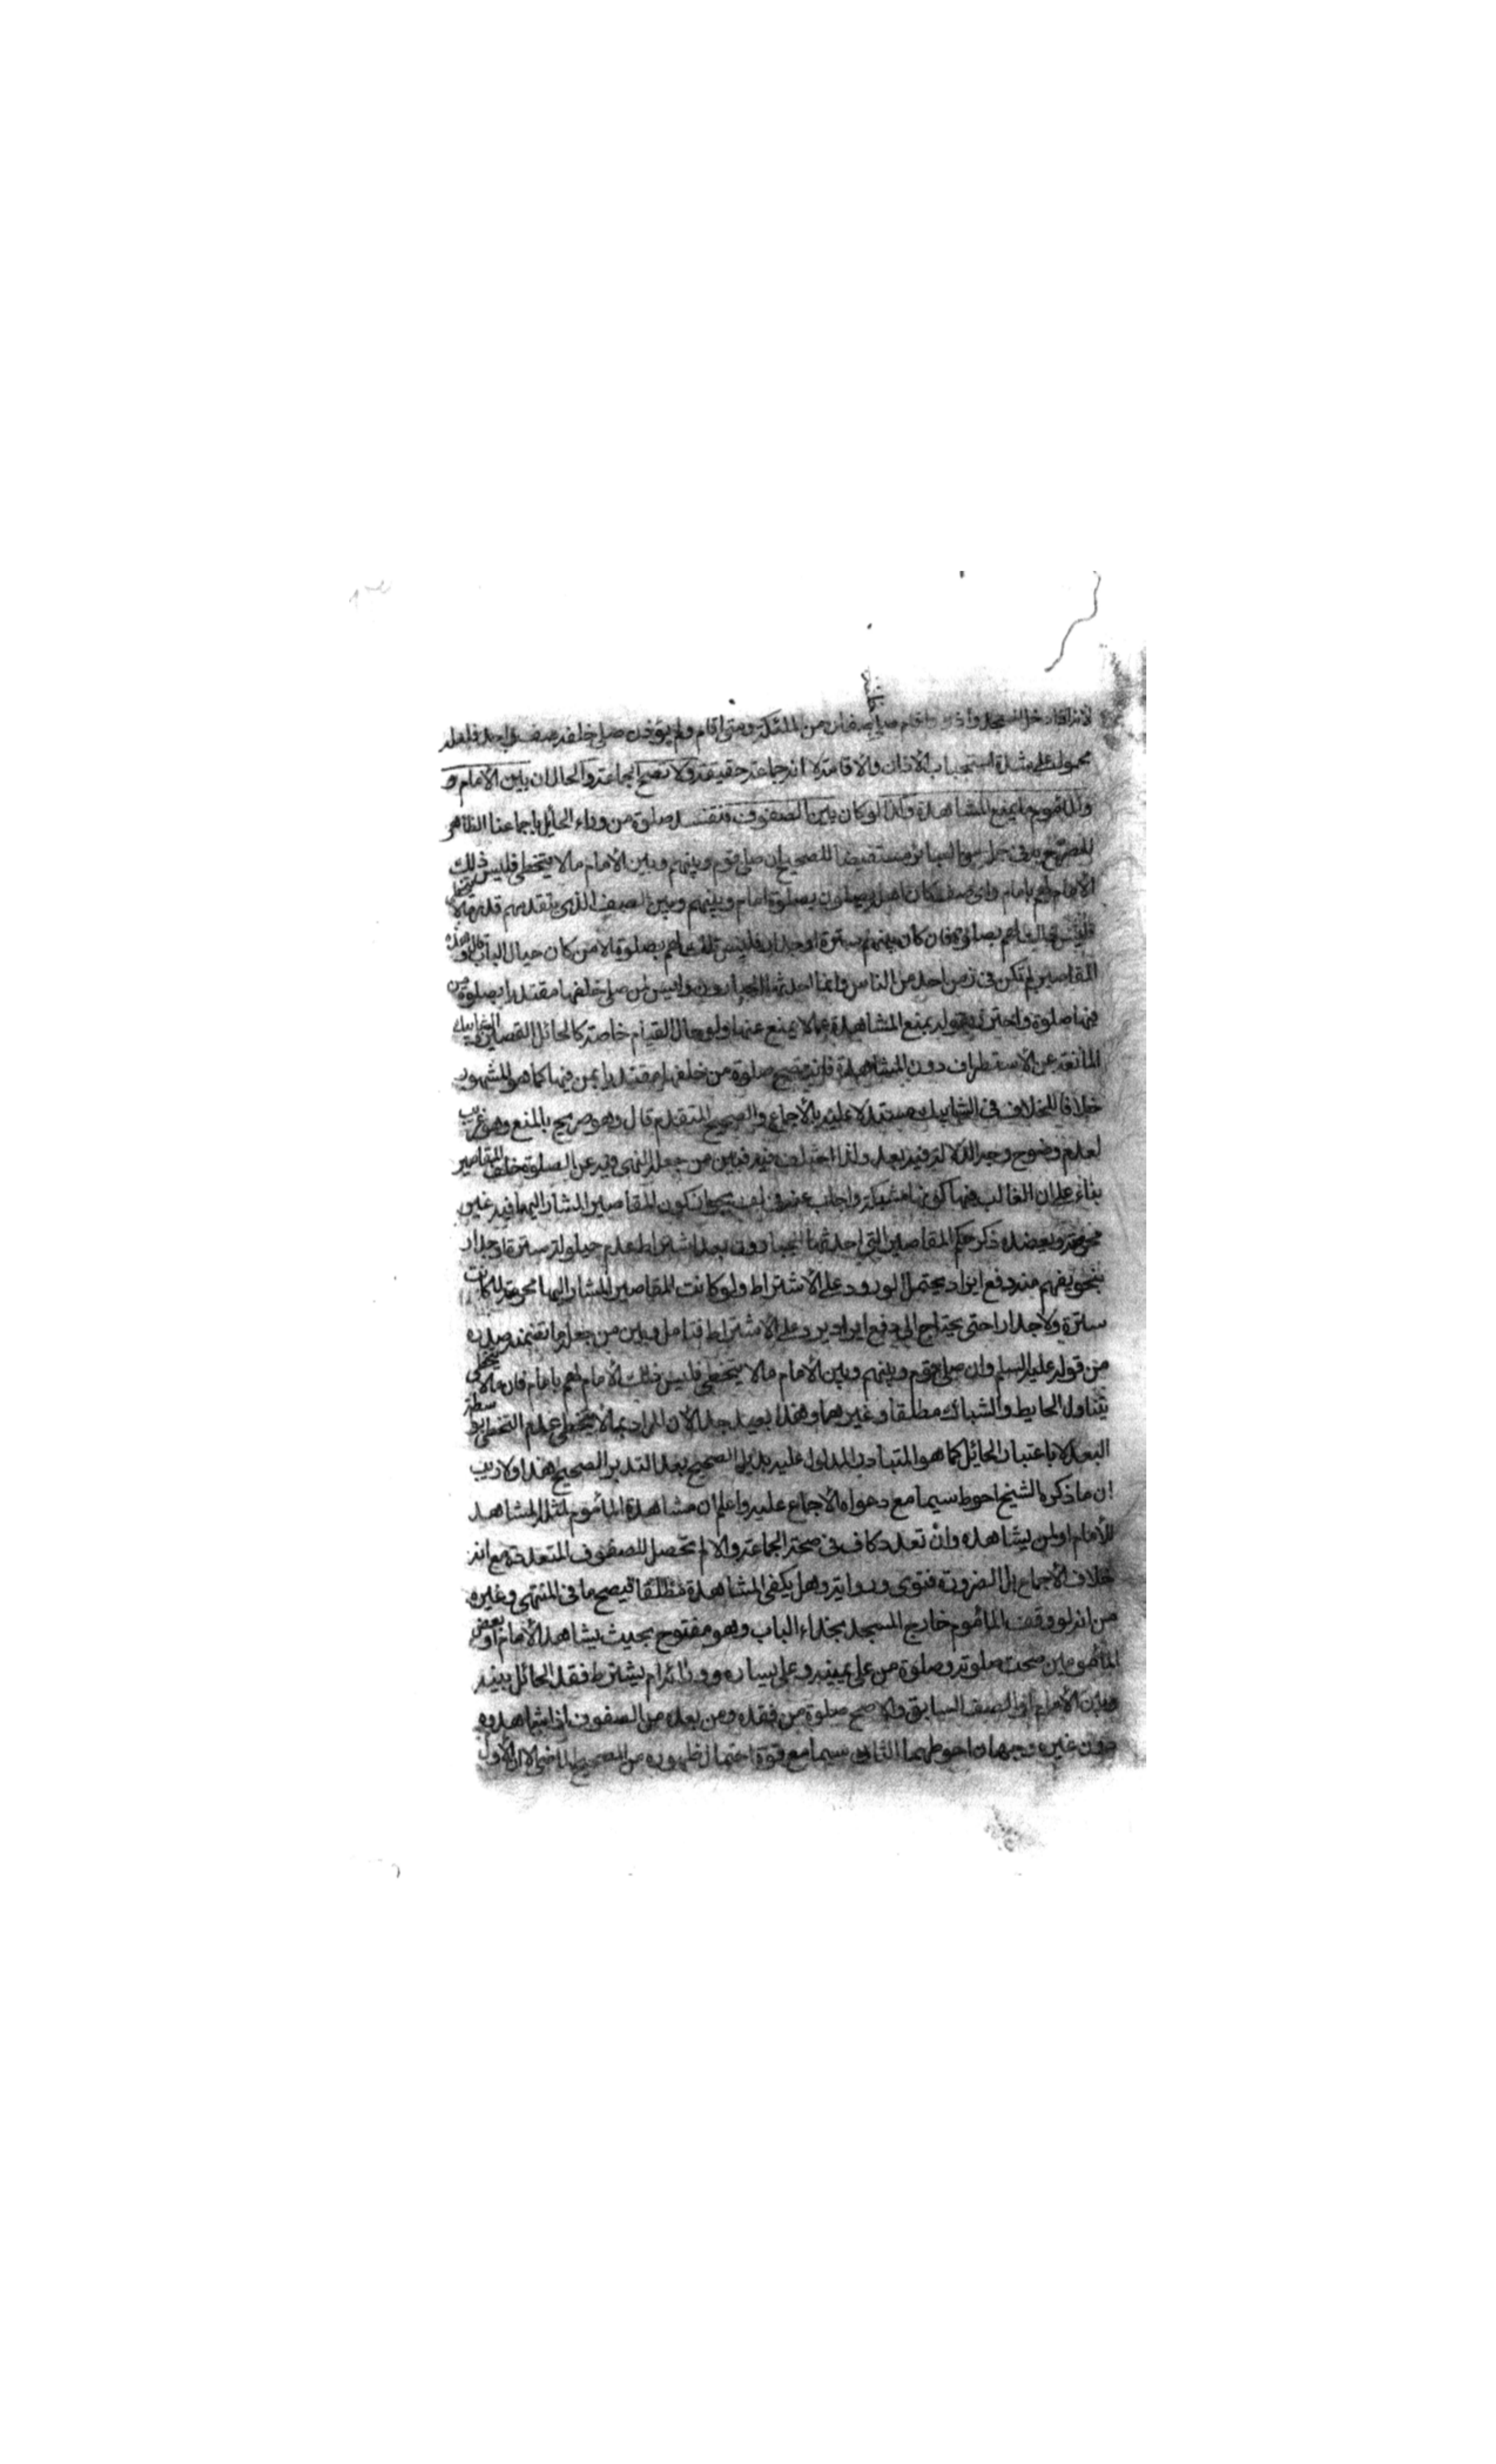 صلى صفان من الملئكة ومتى اقام ولم يؤذن صلى خلفه صف واحد فلعله
محمول على شدة استحباب الاذان والاقامة لا انه جماعة حقيقة ولا تصح الجماعة والحال ان بين الامام و
والمأموم ما يمنع المشاهدة وكذا لو كان بين الصفوف فتفسد صلوة من وراء الحائل باجماعنا الظاهر
المصرح به في مستفيضا للصحيح ان صلى قوم وبينهم وبين الامام ما لا يتخطى فليس ذلك
الامام لهم بامام واى صف كان اهله يصلون بصلوة امام وبينهم وبين الصف الذى يتقدمهم قدر ما لا يتخطى
فليس تلك لهم بصلوة فان كان بينهم سترة او جدار فليس تلك لهم بصلوة الا من كان حيال الباب قال وهذه
المقاصير لم تكن في زمن احد من الناس وانما احدثها الجبارون وليس لمن صلى خلفها مقتديا بصلوة من
فيها صلوة واحترز بقوله يمنع المشاهدة عما لا يمنع عنها ولو حال القيام خاصة كالحائل القصير والشبابيك
المانعة عن الاستطراف دون المشاهدة فانه تصح صلوة من خلفها مقتديا بمن فيها كما هو المشهور
خلافا للخلاف في الشبابيك مستدلا عليه بالاجماع والصحيح المتقدم قال وهو صريح بالمنع وهو غريب
لعدم وضوح وجه الدلالة فيه بعد ولذا اختلف فيه فبين من جعله النهى فيه عن الصلوة خلف المقاصير
بناء على ان الغالب فيها كونها مشبكة واجاب عنه في لف بجواز كون المقاصير المشار اليها فيه غير
مخرمة ويعضده ذكر حكم المقاصير التي احدثها الجبارون بعد اشتراط عدم حيلولة سترة او جدار
بنحو يفهم منه دفع ايراد يحتمل الورود على الاشتراط ولو كانت المقاصير المشار اليها مخرمة لما كانت
سترة ولا جدارا حتى يحتاج الى دفع ايراد يرد على الاشتراط فتامل وبين من جعل ما تضمنه صدره
من قوله عليه السلم وان صلى قوم وبينهم وبين الامام ما لا يتخطى فليس ذلك الامام لهم بامام فان ما لا يتخطى
يتناول الحايط والشباك مطلقا وغيرهما وهذا بعيد جدا لان المراد بما لا يتخطى عدم التخطى بواسطة
البعد لا باعتبار الحائل كما هو المتبادر المدلول عليه بذيل الصحيح بعد التدبر الصحيح هذا ولا ريب
ان ما ذكره الشيخ احوط سيما مع دعواه الاجماع عليه واعلم ان مشاهدة المأموم لمثله المشاهد
للامام او لمن يشاهده وان تعدد كاف في صحة الجماعة والا لم تحصل للصفوف المتعددة مع انه
خلاف الاجماع بل الضرورة فتوى ورواية وهل يكفى المشاهدة مطلقا فيصح ما في المنتهى وغيره
من انه لو وقف المأموم خارج المسجد بحذاء الباب وهو مفتوح بحيث يشاهد الامام او بعض
المأمومين صحت صلوته وصلوة من على يمينه وعلى يساره وورائه ام يشترط فقد الحائل بينه
وبين الامام او الصف السابق والا صح صلوة من فقده ومن بعده من الصفوف اذا شاهدوه
دون غيره وجهان احوطهما الثاني سيما مع قوة احتمال ظهوره من الصحيح الماضى الا ان الاول